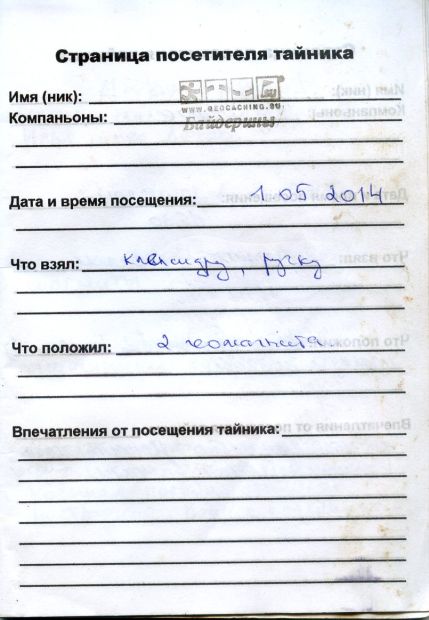 Страница посетителя тайника
Имя (ник):
WWW.GEOCACHING.SU
Компаньоны: Байдерины
Дата и время посещения: 1 05 2014
Что взял: календру, ручку
Что положил: 2 геомагнита
Впечатления от посещения тайника: